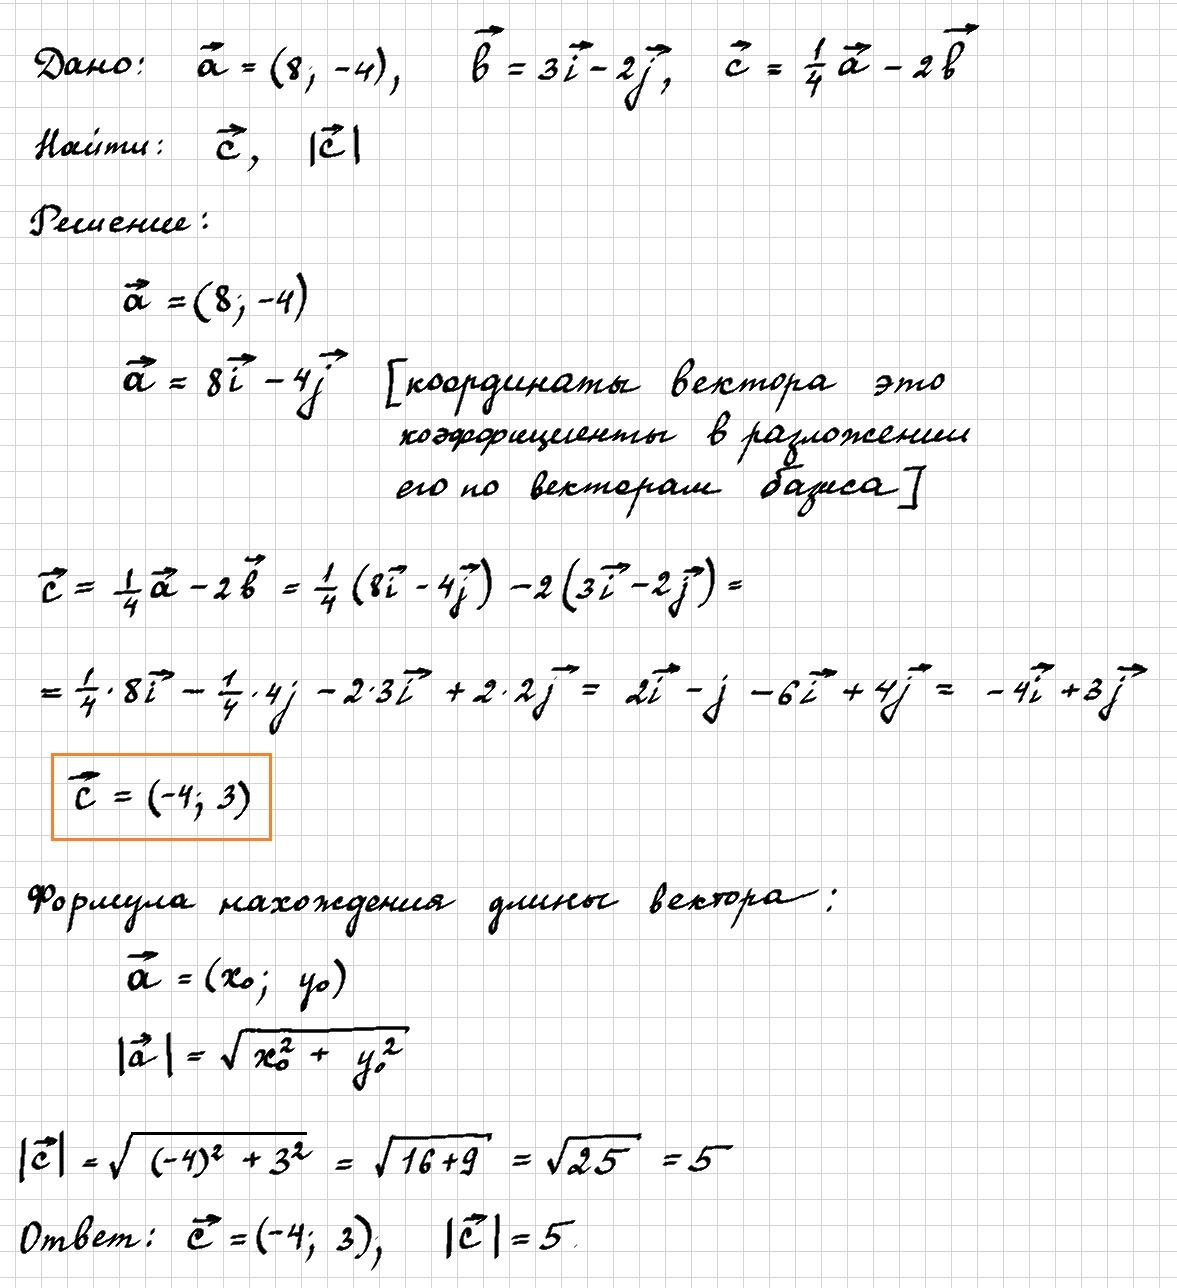 Дано: a⃗ = (8; -4), b⃗ = 3i⃗ - 2j⃗, c⃗ = 1/4 a⃗ - 2b⃗
Найти: c⃗, |c⃗|
Решение:
a⃗ = (8; -4)
a⃗ = 8i⃗ - 4j⃗ [координаты вектора это
коэффициенты в разложении
его по векторам базиса]
c⃗ = 1/4 a⃗ - 2b⃗ = 1/4 (8i⃗ - 4j⃗) - 2(3i⃗ - 2j⃗) =
= 1/4 · 8i⃗ - 1/4 · 4j - 2·3i⃗ + 2·2j⃗ = 2i⃗ - j - 6i⃗ + 4j⃗ = -4i⃗ + 3j⃗
c⃗ = (-4; 3)
Формула нахождения длины вектора:
a⃗ = (x₀; y₀)
|a⃗| = √(x₀² + y₀²)
|c⃗| = √((-4)² + 3²) = √(16+9) = √25 = 5
Ответ: c⃗ = (-4; 3), |c⃗| = 5